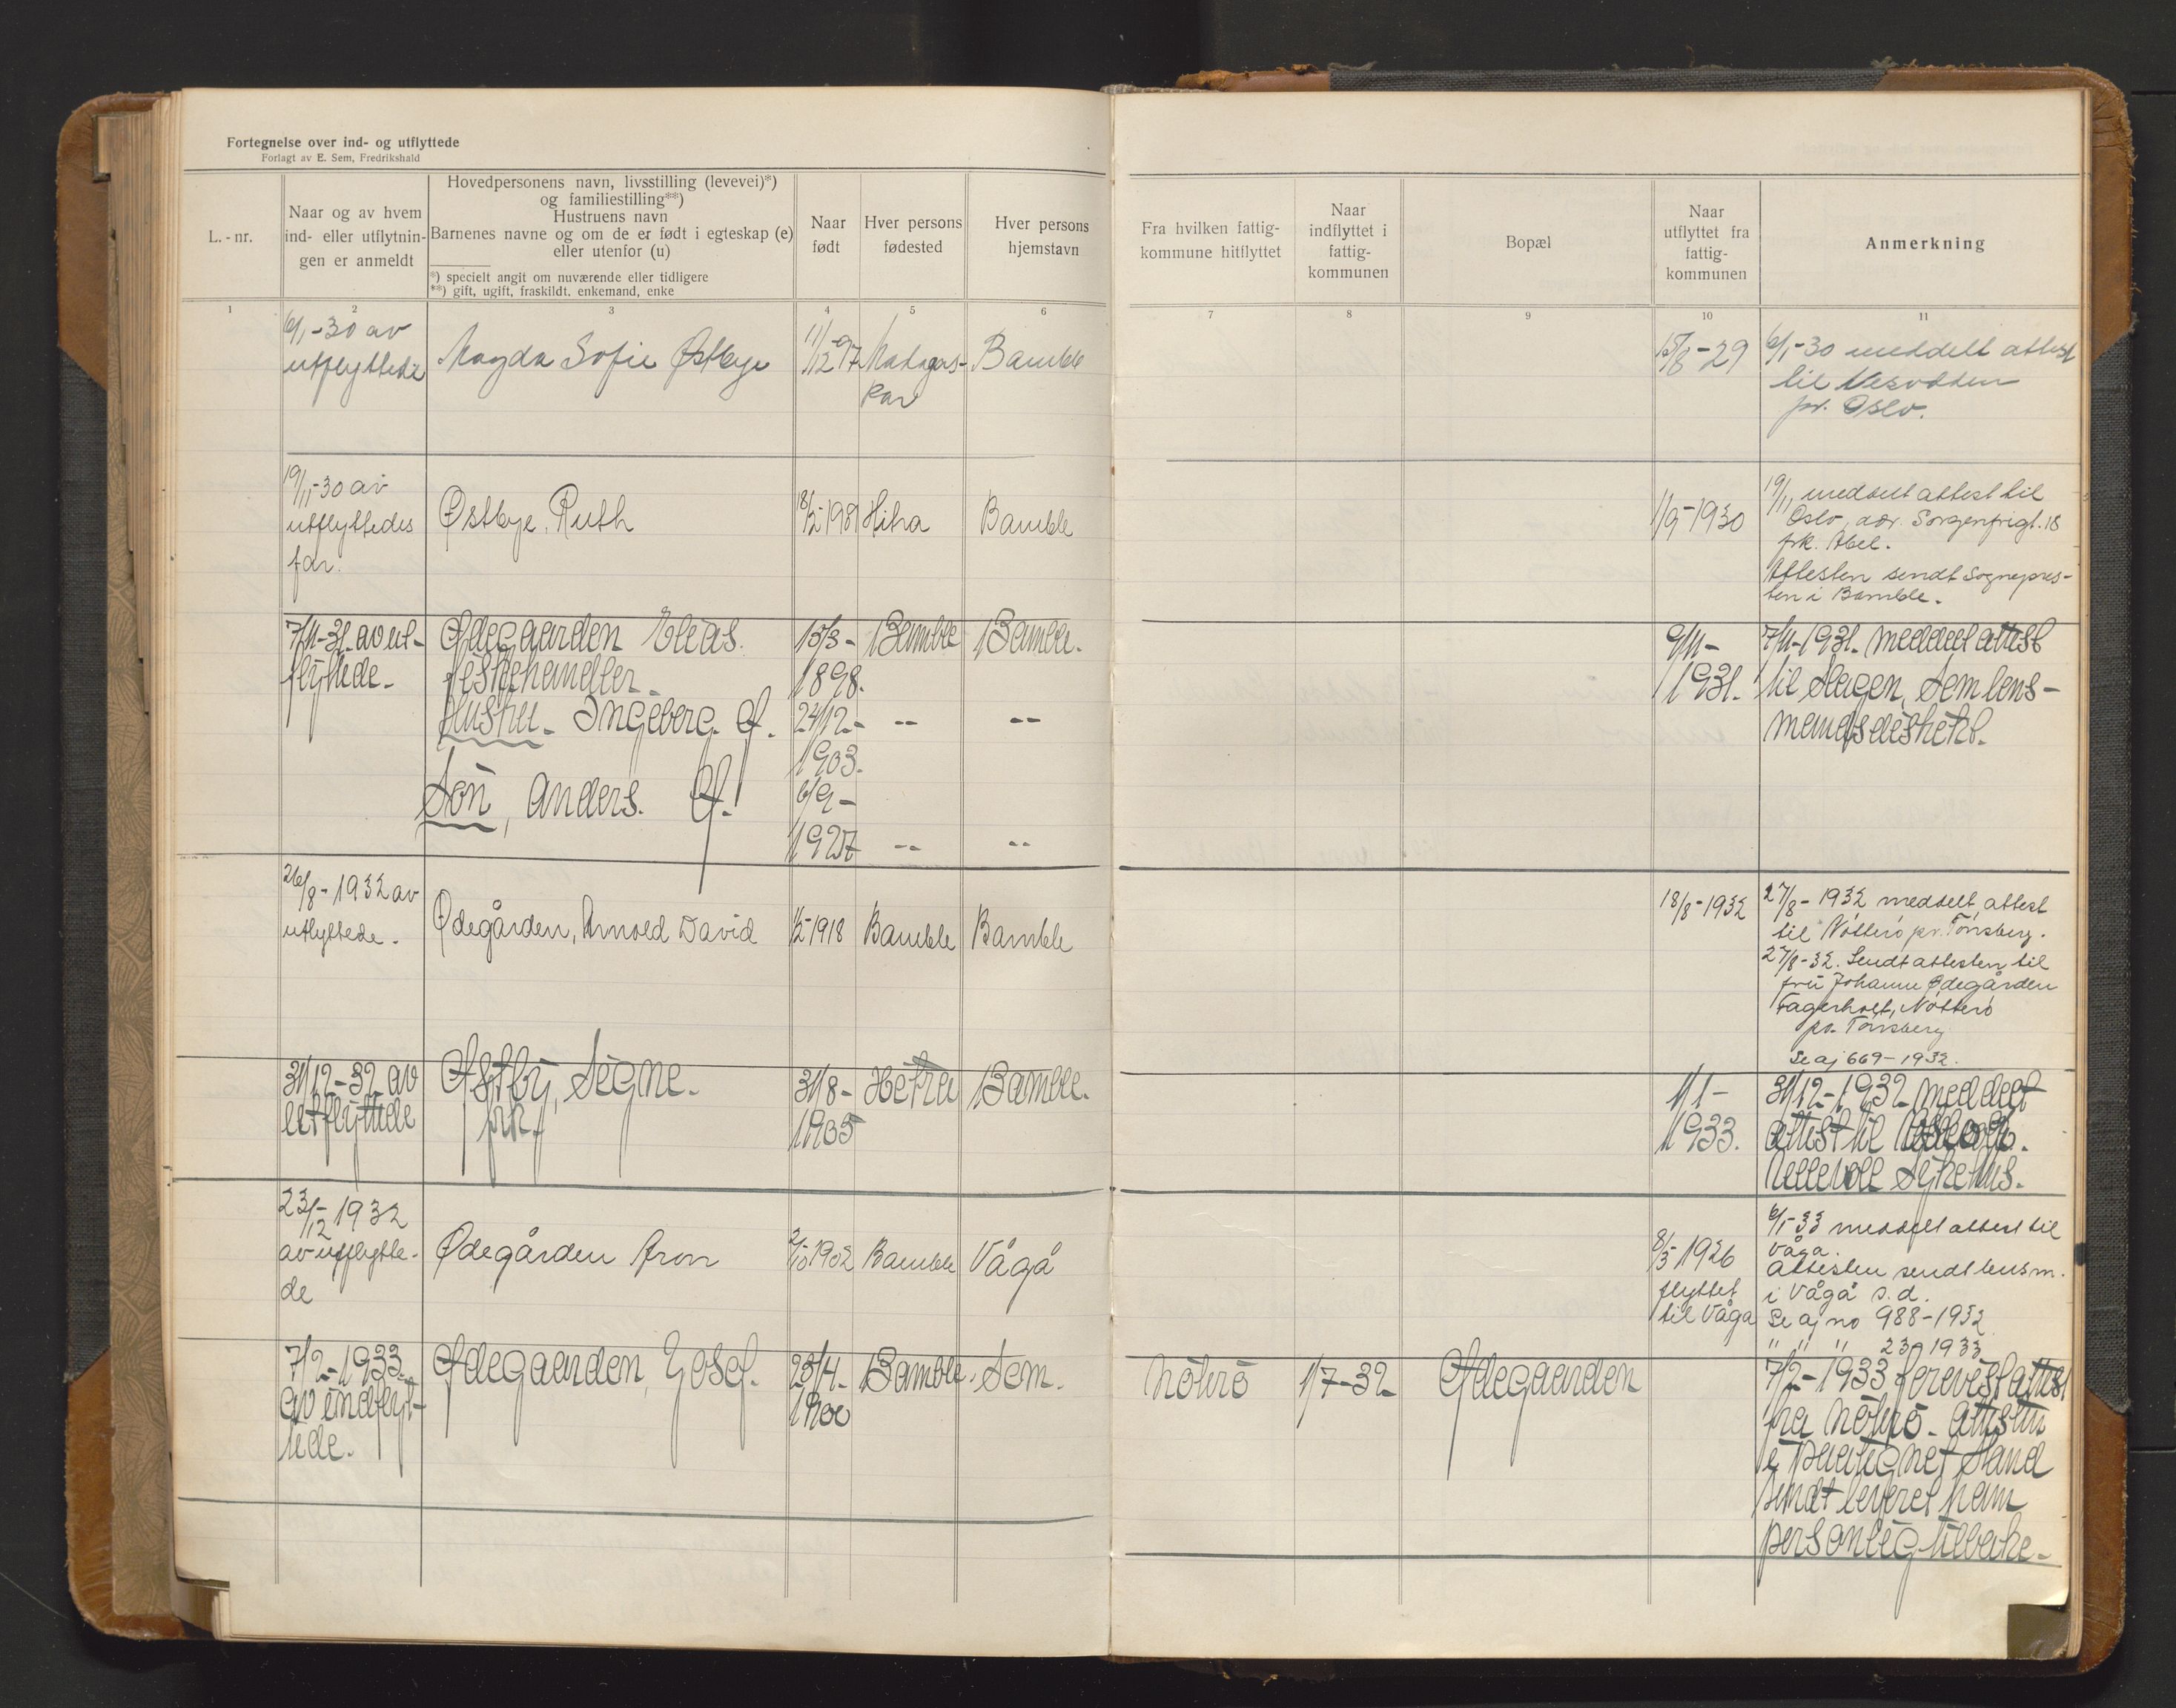 Fortegnelse over ind- og utflyttede
Forlagt av E. Sem, Fredrikshald
L.-nr.
Naar og av hvem
ind- eller utflytnin-
gen er anmeldt
Hovedpersonens navn, livsstilling (levevei)*)
og familiestilling**)
Hustruens navn
Barnenes navne og om de er født i egteskap (e)
eller utenfor (u)
*) specielt angit om nuværende eller tidligere
**) gift, ugift, fraskildt, enkemand, enke
Naar
født
Hver persons
fødested
Hver persons
hjemstavn
Fra hvilken fattig-
kommune hitflyttet
Naar
indflyttet i
fattig-
kommunen
Bopæl
Naar
utflyttet fra
fattig-
kommunen
Anmerkning
1 2 3 4 5 6 7 8 9 10 11
6/1-30 av
utflyttede
Magda Sofie Østbye
11/12-97
Madagas-
kar
Bamble
15/8-29
6/1-30 meddelt attest
til Nesodden
pr. Oslo.
19/11-30 av
utflyttedes
far.
Østbye, Ruth
Hitra
Bamble
1/9-1930
19/11 meddelt attest til
Oslo, adr. Sorgenfrigt. 18
frk. Abel.
Attesten sendt Sognepres-
ten i Bamble.
7/11-31. av ut-
flyttede-
Ødegaarden Elias.
fiskehandler-
Hustru- Ingeborg Ø.
Søn, Anders. Ø.
15/3-
1898.
24/12-
1903.
6/9-
1927
Bamble
Bamble.
-- --
-- --
9/11-
1931.
7/11-1931. meddelt attest
til Slagen, Sem lens-
mandsdistrikt.
26/8-1932 av
utflyttede-
Ødegården, Arnold David
1/2-1918
Bamble
Bamble
18/8-1932
27/8-1932 meddelt attest
til Nøtterø pr. Tønsberg.
27/8-32. Sendt attesten til
fru Johanne Ødegården
Fagerholt, Nøtterø
pr. Tønsberg
Se aj 669-1932.
31/12-32 av
utflyttede
Østby, Signe.
frk.
31/8-
1905
Hitra
Bamble.
1/1-
1933.
31/12-1932 meddelt
attest til
Ullevoll Sykehus.
23/12-1932
av utflytte-
de
Ødegården Aron
2/10 1902
Bamble
Vågå
8/5 1926
flyttet
til Vågå
6/1-33 meddelt attest til
Vågå.
Attesten sendt lensm.
i Vågå s.d.
Se aj no 988-1932
" " " 23-1933
7/2-1933.
av indflyt-
tede.
Ødegaarden, Josef.
23/4-
1900
Bamble.
Sem.
Nøtrø
1/7-32-
Ødegaarden
7/2-1933 forevist attest
fra Nøtrø- attesten
i paategnet stand
sendt leveret ham
personlig tilbake-